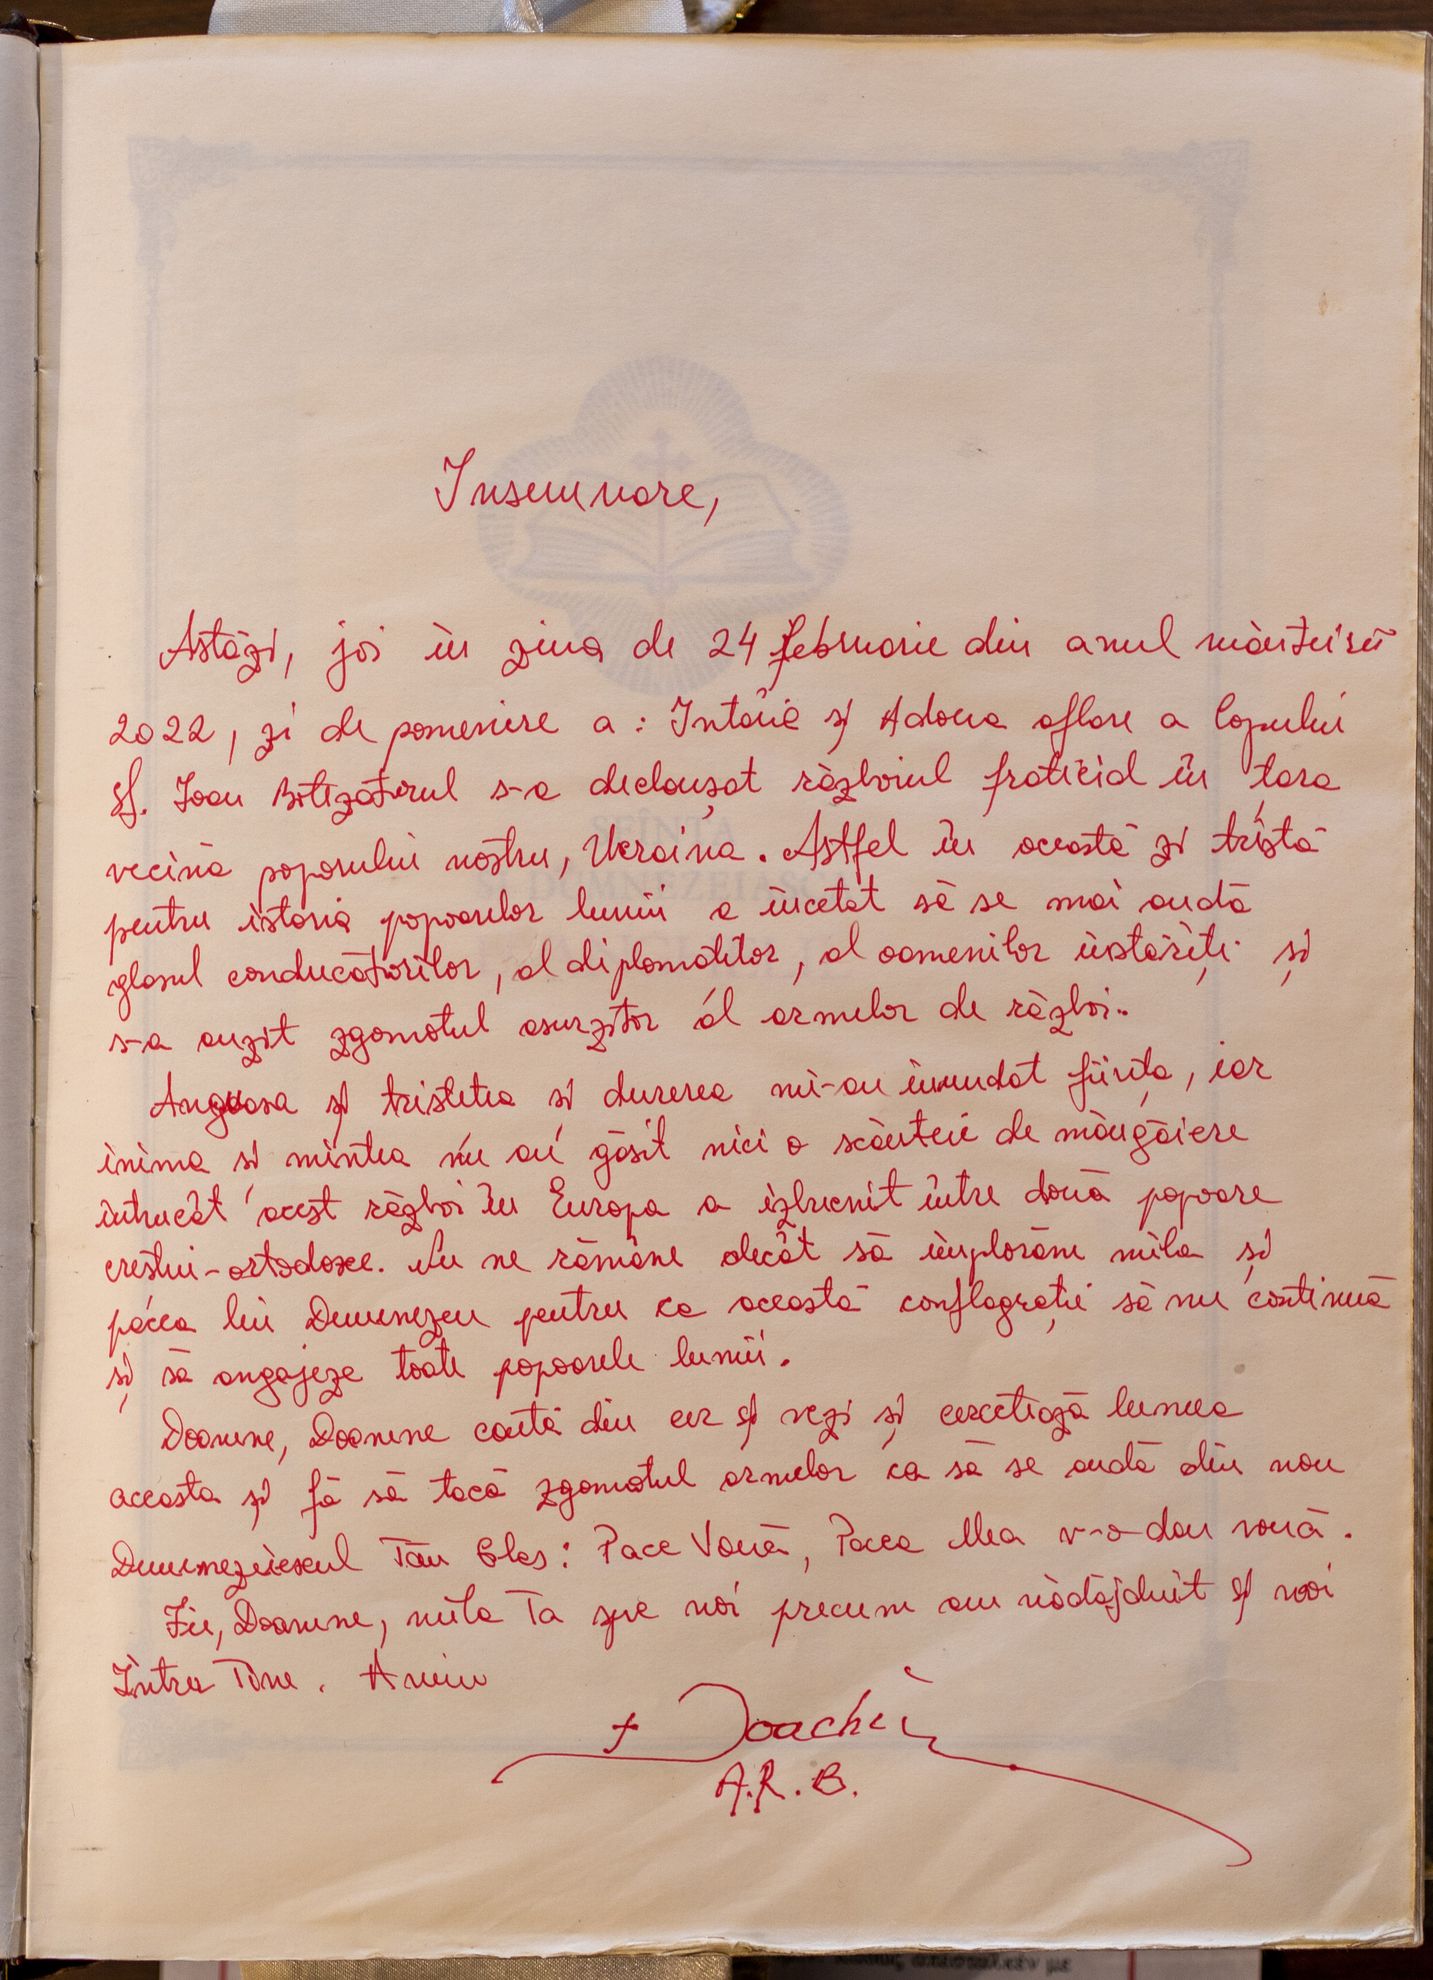 Însemnare,
Astăzi, joi în ziua de 24 februarie din anul mântuirii
2022, zi de pomenire a: Întâia și Adoua aflare a Capului
Sf. Ioan Botezătorul s-a declanșat războiul fratricid în țara
vecină poporului nostru, Ucraina. Astfel în această zi tristă
pentru istoria popoarelor lumii a încetat să se mai audă
glasul conducătorilor, al diplomaților, al oamenilor înstăriți și
s-a auzit zgomotul asurzitor al armelor de război.
Angoasa și tristețea și durerea mi-au inundat ființa, iar
inima și mintea nu au găsit nici o scânteie de mângâiere
întrucât acest război în Europa a izbucnit între două popoare
creștin-ortodoxe. Nu ne rămâne decât să implorăm mila și
pacea lui Dumnezeu pentru ca această conflagrație să nu continuă
și să angajeze toate popoarele lumii.
Doamne, Doamne caută din cer și vezi și cercetează lumea
aceasta și fă să tacă zgomotul armelor ca să se audă din nou
Dumnezeiescul Tău Glas: Pace Vouă, Pacea Mea v-o dau vouă.
Fie, Doamne, mila Ta spre noi precum am nădăjduit și noi
întru Tine. Amin
+ Ioachim
A.R.B.
SFÎNTA
DUMNEZEIASCA